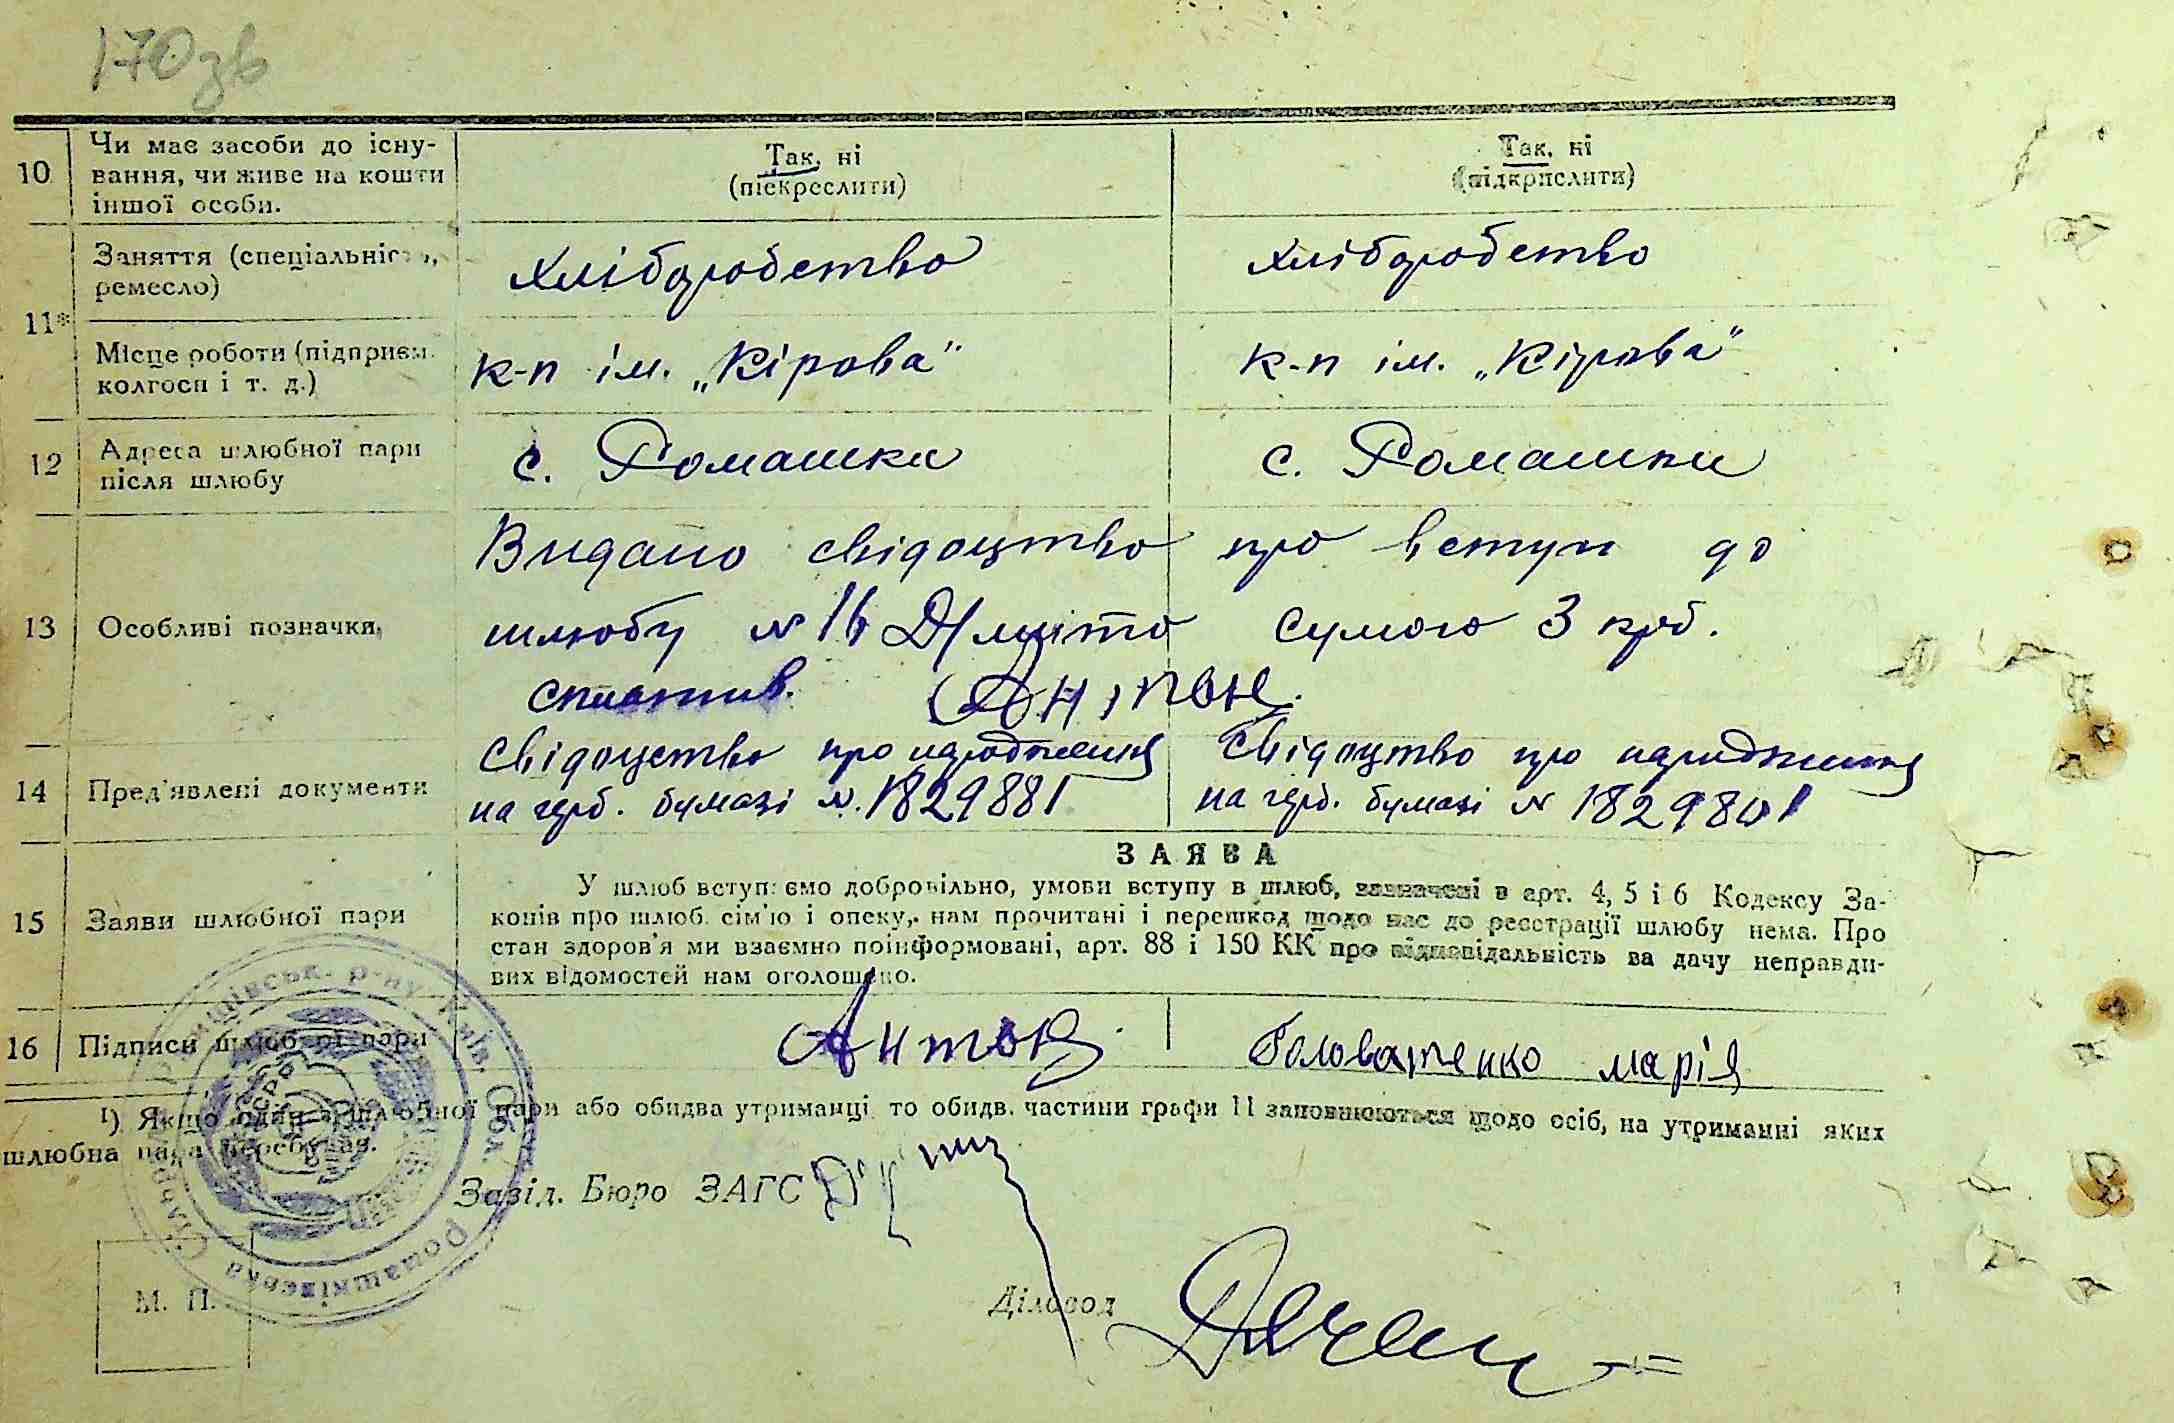 170зв
10 Чи має засоби до існу- Так, ні Так, ні
вання, чи живе на кошти (піскреслити) (підкрислити)
іншої особи.
11* Заняття (спеціальність, Хліборобство Хліборобство
ремесло)
Місце роботи (підприєм. к-п ім. „Кірова" к-п ім. „Кірова"
колгосп і т. д.)
12 Адреса шлюбної пари с. Ромашки с. Ромашки
після шлюбу
13 Особливі позначки, Видано свідоцтво про вступ до
шлюбу № 16 Д/мито сумою 3 крб.
сплатив.
14 Пред'явлені документи Свідоцство про народження Свідоцтво про народження
на герб. бумазі №. 1829881 на герб. бумазі № 1829801
ЗАЯВА
15 Заяви шлюбної пари У шлюб вступаємо добровільно, умови вступу в шлюб, зазначені в арт. 4, 5 і 6 Кодексу За-
конів про шлюб. сім'ю і опеку, нам прочитані і перешкод щодо нас до реєстрації шлюбу нема. Про
стан здоров'я ми взаємно поінформовані, арт. 88 і 150 КК про відповідальність за дачу неправди-
вих відомостей нам оголошено.
16 Підписи шлюбної пари Антон Головатенко марія
¹) Якщо один з шлюбної пари або обидва утриманці то обидв. частини графи 11 заповнюються щодо осіб, на утриманні яких
шлюбна пара перебуває.
Завід. Бюро ЗАГС
Діловод
М. П.
р-ну Київ. Обл. Ромашківська